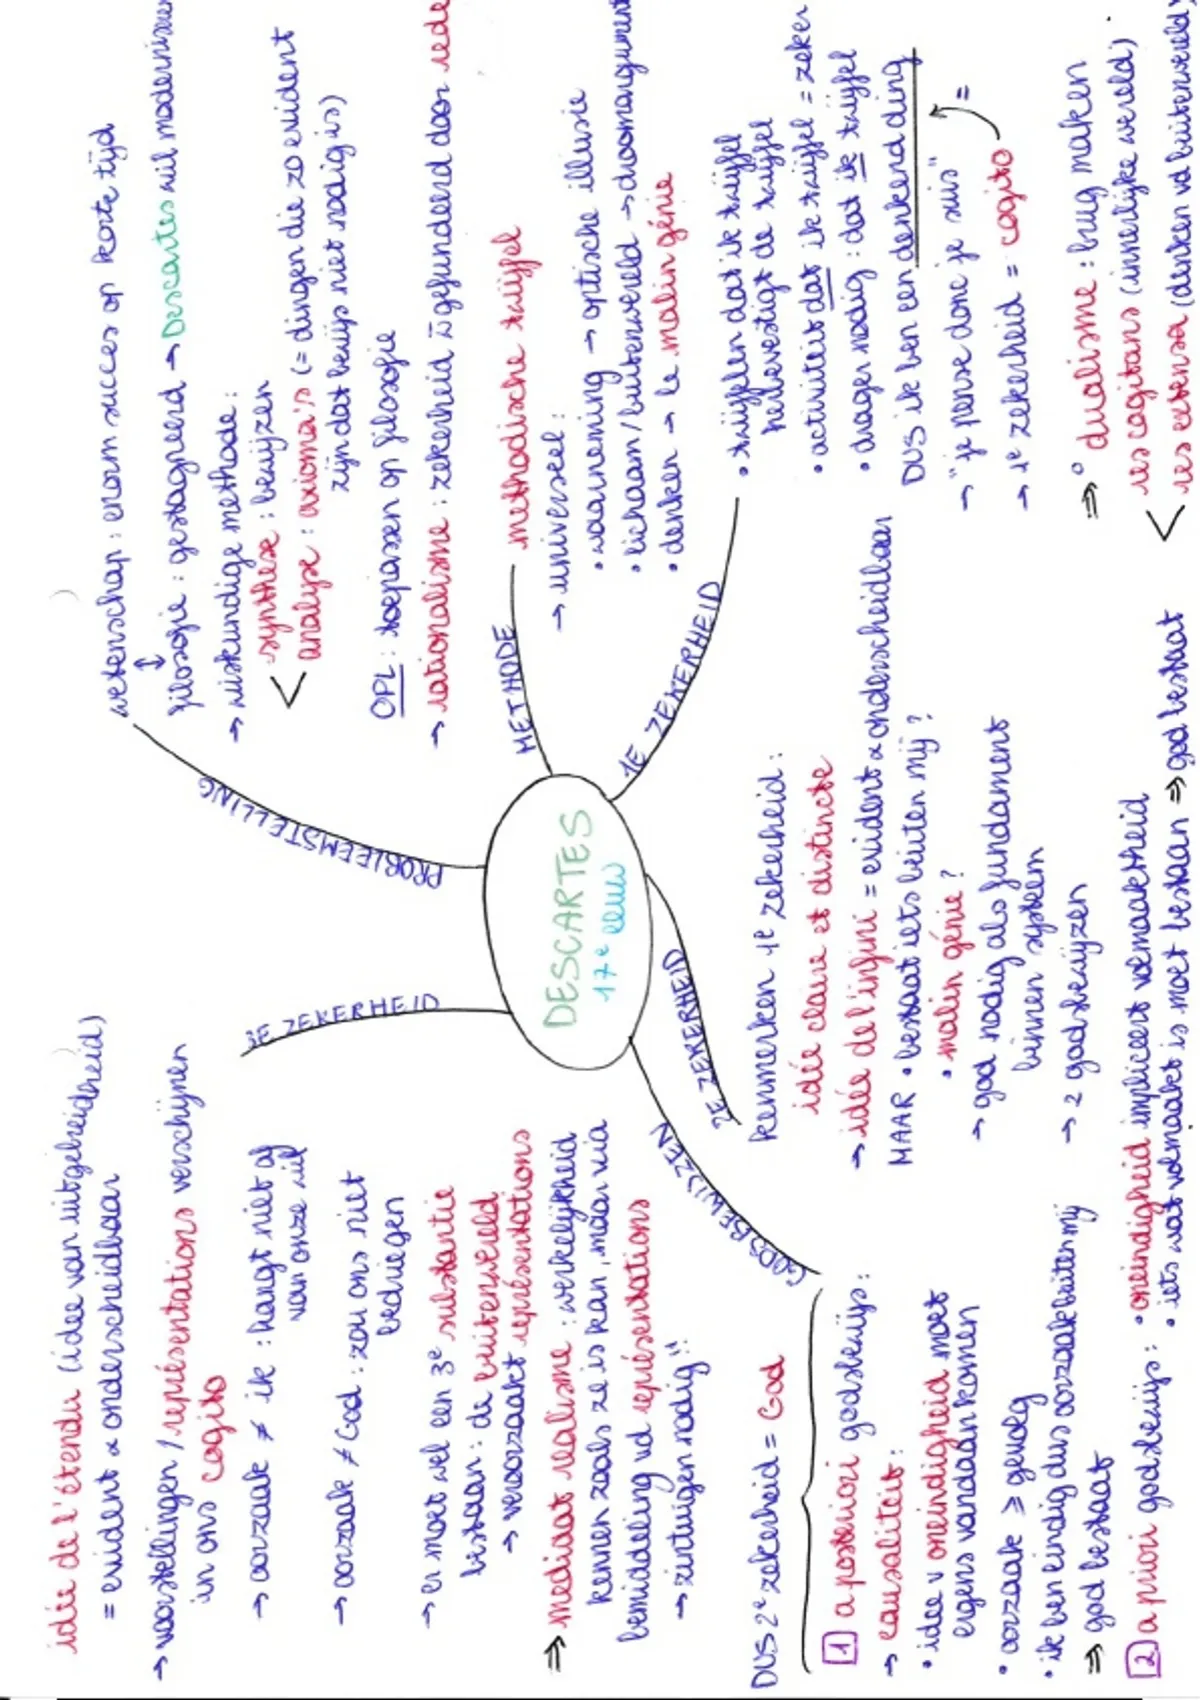 DESCARTES
17e eeuw
PROBLEEMSTELLING
wetenschap : enorm succes op korte tijd
↕
filosofie : gestagneerd → Descartes wil moderniseren
→ wiskundige methode :
synthese : bewijzen
< analyse : axioma's (= dingen die zo evident
zijn dat bewijs niet nodig is)
OPL : toepassen op filosofie
→ rationalisme : zekerheid is gefundeerd door rede
METHODE
methodische twijfel
→ universeel :
• waarneming → optische illusie
• lichaam/buitenwereld → droomargument
• denken → le malin génie
1E ZEKERHEID
• twijfelen dat ik twijfel
herbevestigt de twijfel
• activiteit dat ik twijfel = zeker
• drager nodig : dat ik twijfel
DUS ik ben een denkend ding
→ "je pense donc je suis" =
→ 1e zekerheid = cogito
⇒ dualisme : brug maken
res cogitans (innerlijke wereld)
< res extensa (denken vd buitenwereld)
2E ZEKERHEID
kenmerken 1e zekerheid :
idée claire et distincte
→ idée de l'infini = evident & onderscheidbaar
MAAR • bestaat iets buiten mij ?
• malin génie ?
→ god nodig als fundament
binnen systeem
→ 2 godsbewijzen
GODSBEWIJZEN
DUS 2e zekerheid = God
1 a posteriori godsbewijs :
→ causaliteit :
• idee v oneindigheid moet
ergens vandaan komen
• oorzaak ≥ gevolg
• ik ben eindig dus oorzaak buiten mij
⇒ god bestaat
2 a priori godsbewijs : • oneindigheid impliceert volmaaktheid
• iets wat volmaakt is moet bestaan ⇒ god bestaat
3E ZEKERHEID
idée de l'étendu (idee van uitgebreidheid)
= evident & onderscheidbaar
→ voorstellingen / représentations verschijnen
in ons cogito
→ oorzaak ≠ ik : hangt niet af
van onze wil
→ oorzaak ≠ God : zou ons niet
bedriegen
→ er moet wel een 3e substantie
bestaan : de buitenwereld
→ veroorzaakt représentations
⇒ mediaat realisme : werkelijkheid
kennen zoals ze is kan, maar via
bemiddeling vd représentations
→ zintuigen nodig !!